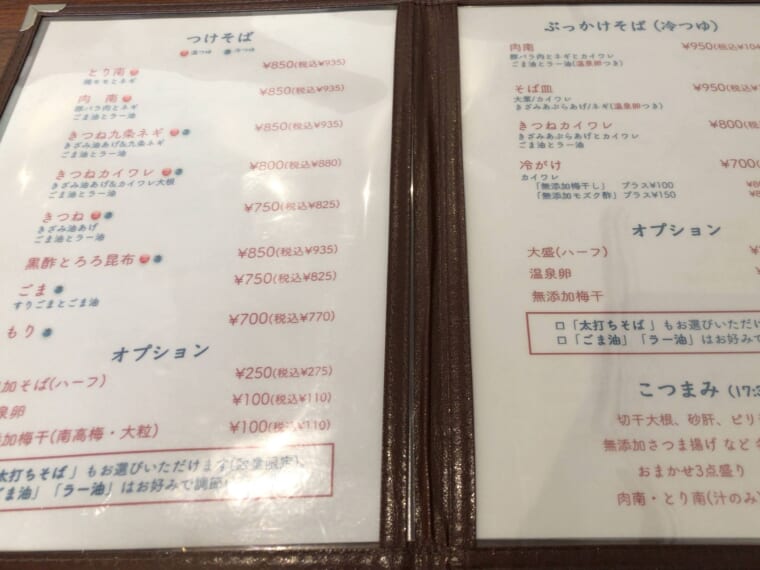 つけそば
温つゆ 冷つゆ
とり南 ¥850(税込¥935)
鶏モモとネギ
肉 南 ¥850(税込¥935)
豚バラ肉とネギ
ごま油とラー油
きつね九条ネギ ¥850(税込¥935)
きざみ油あげ&九条ネギ
ごま油とラー油
きつねカイワレ ¥800(税込¥880)
きざみ油あげ&カイワレ大根
ごま油とラー油
きつね ¥750(税込¥825)
きざみ油あげ
ごま油とラー油
黒酢とろろ昆布 ¥850(税込¥935)
ごま ¥750(税込¥825)
すりごまとごま油
もり ¥700(税込¥770)
オプション
加そば(ハーフ) ¥250(税込¥275)
泉卵 ¥100(税込¥110)
添加梅干(南高梅・大粒) ¥100(税込¥110)
太打ちそば」もお選びいただけます(数量限定)
ごま油」「ラー油」はお好みで調節
ぶっかけそば(冷つゆ)
肉南 ¥950(税込¥104
豚バラ肉とネギとカイワレ
ごま油とラー油(温泉卵つき)
そば皿 ¥950(税込¥1
大葉/カイワレ
きざみあぶらあげ/ネギ(温泉卵つき)
きつねカイワレ ¥800(税込
きざみあぶらあげとカイワレ
ごま油とラー油
冷がけ ¥700(税
カイワレ
「無添加梅干し」 プラス¥100
「無添加モズク酢」プラス¥150
オプション
大盛(ハーフ)
温泉卵
無添加梅干
□「太打ちそば」もお選びいただけ
□「ごま油」「ラー油」はお好みで
こつまみ (17:3
切干大根、砂肝、ピリ
無添加さつま揚げ など
おまかせ3点盛り
肉南・とり南(汁のみ)